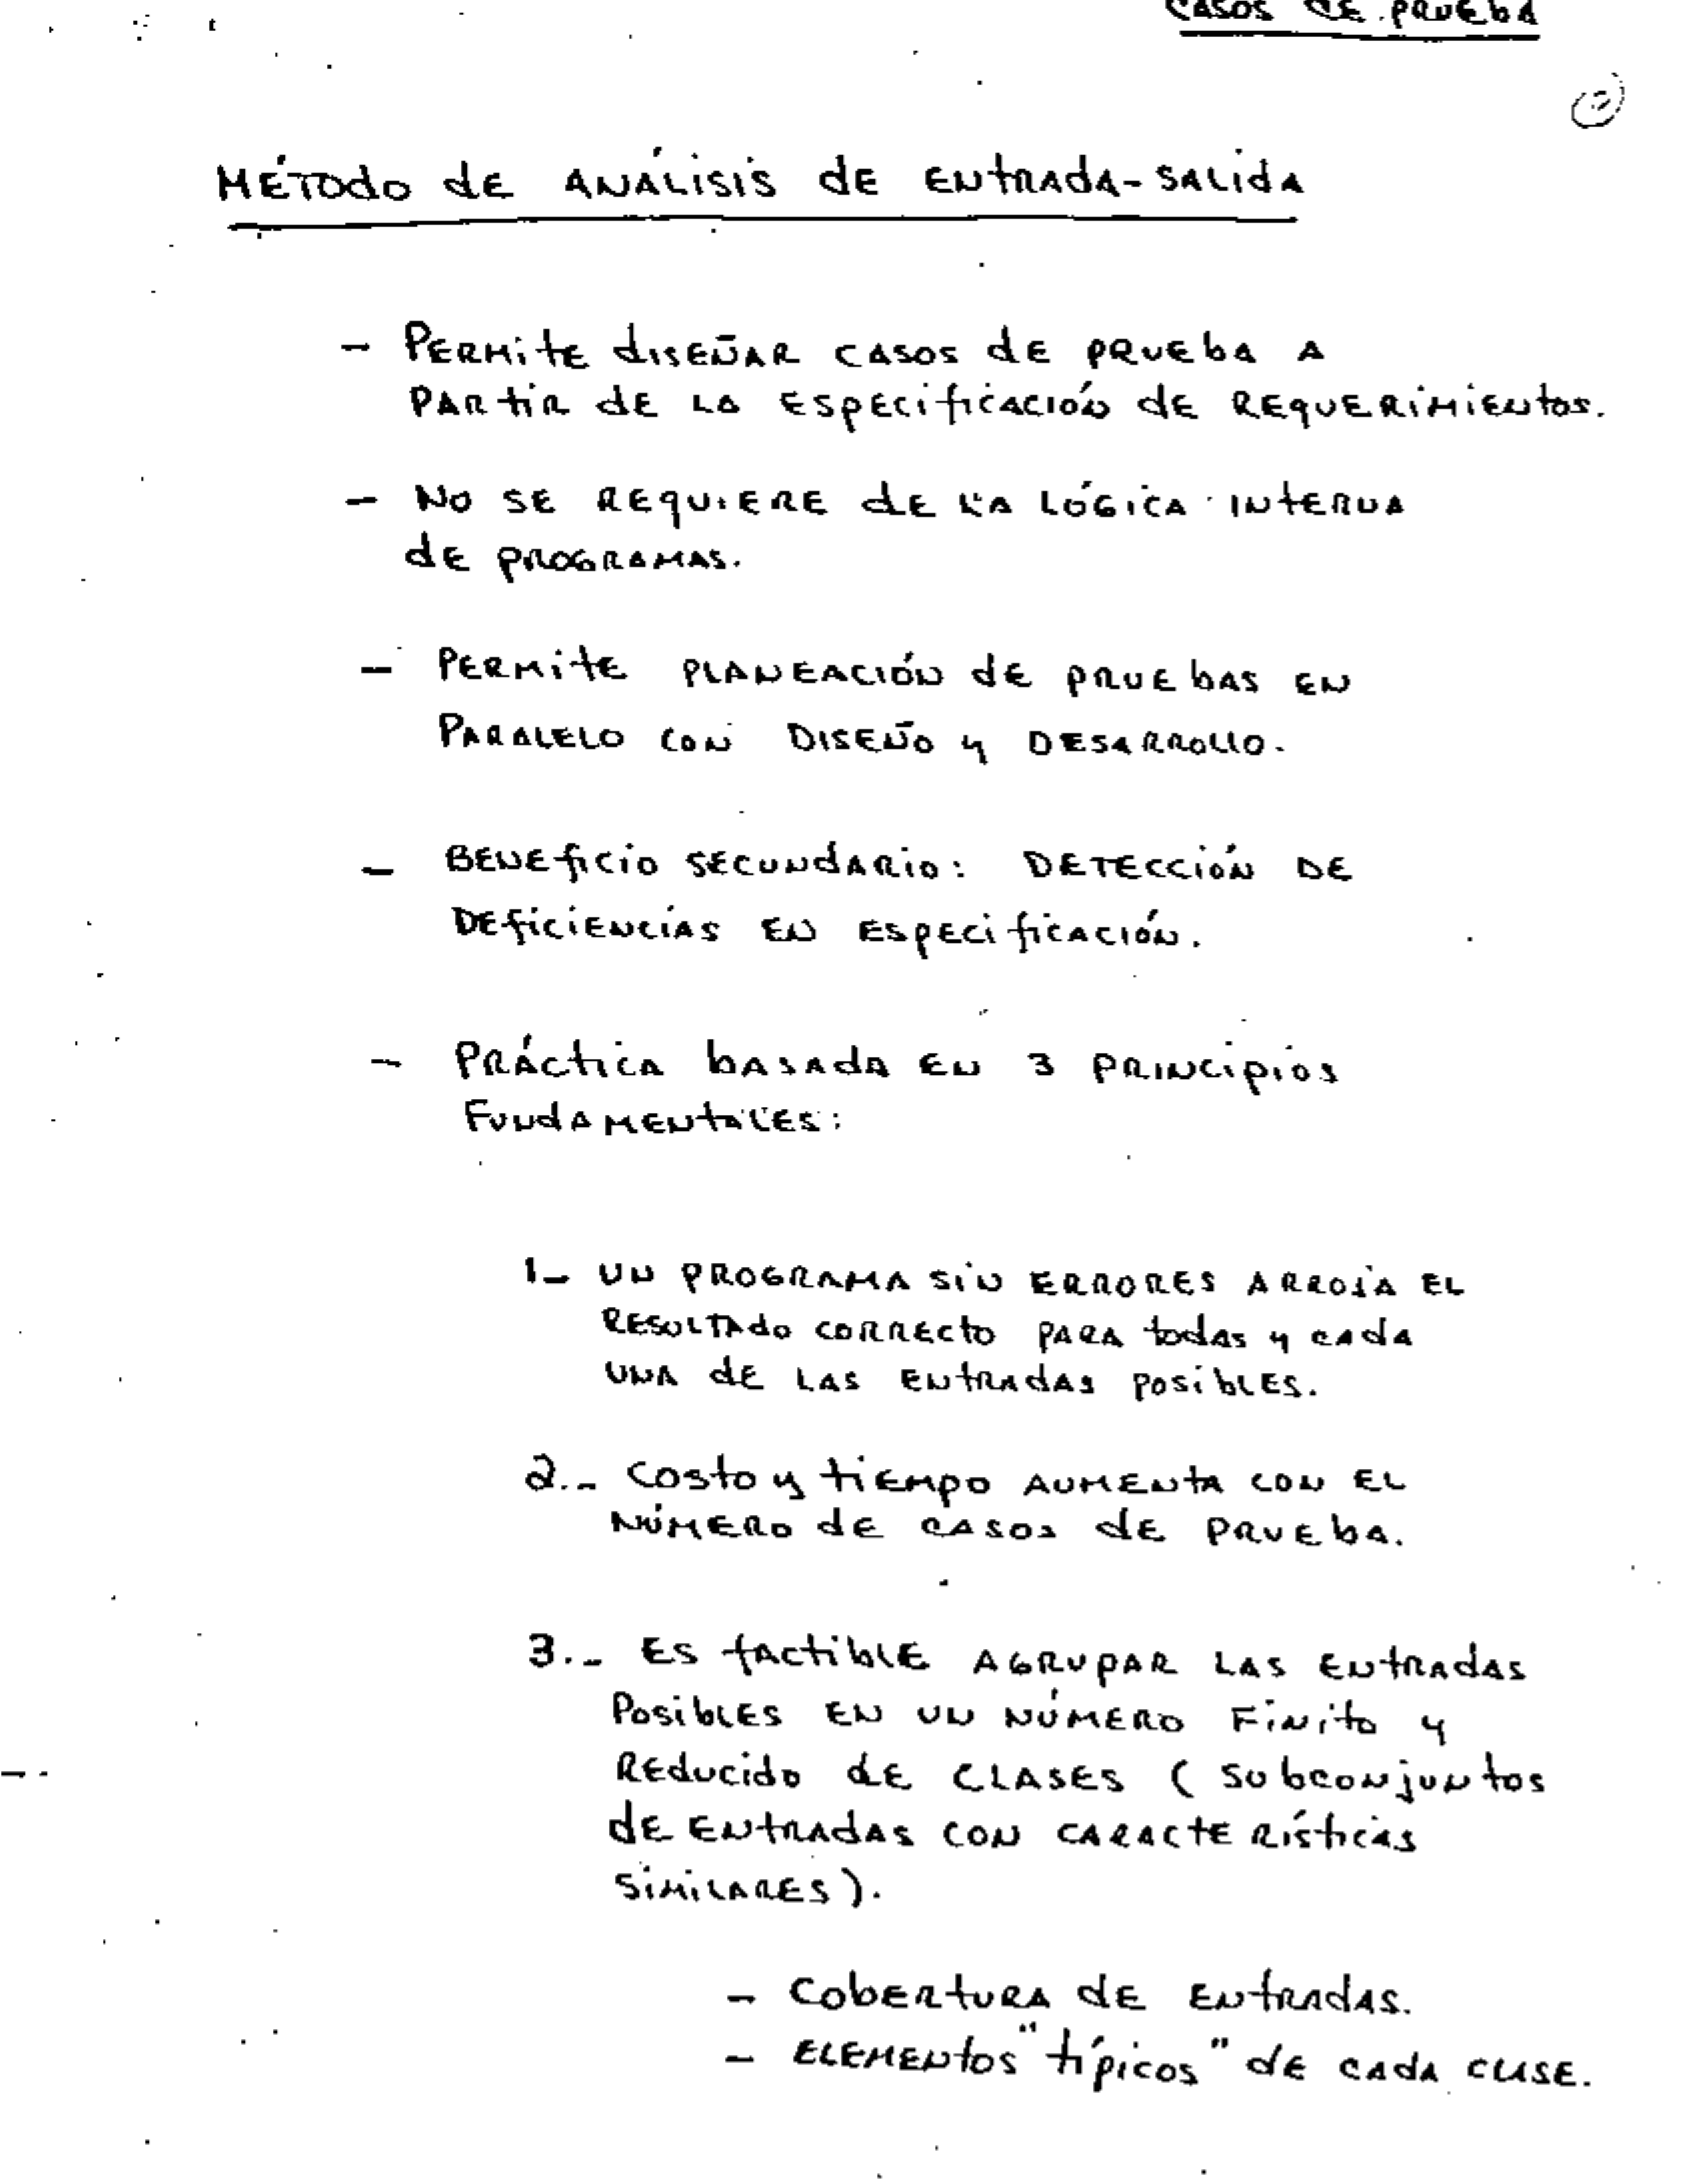 CASOS DE PRUEBA
MÉTODO DE ANÁLISIS DE ENTRADA-SALIDA
- PERMITE DISEÑAR CASOS DE PRUEBA A
PARTIR DE LA ESPECIFICACIÓN DE REQUERIMIENTOS.
- NO SE REQUIERE DE LA LÓGICA INTERNA
DE PROGRAMAS.
- PERMITE PLANEACIÓN DE PRUEBAS EN
PARALELO CON DISEÑO Y DESARROLLO.
- BENEFICIO SECUNDARIO: DETECCIÓN DE
DEFICIENCIAS EN ESPECIFICACIÓN.
- PRÁCTICA BASADA EN 3 PRINCIPIOS
FUNDAMENTALES:
1- UN PROGRAMA SIN ERRORES ARROJA EL
RESULTADO CORRECTO PARA TODAS Y CADA
UNA DE LAS ENTRADAS POSIBLES.
2.- COSTO Y TIEMPO AUMENTA CON EL
NÚMERO DE CASOS DE PRUEBA.
3.- ES FACTIBLE AGRUPAR LAS ENTRADAS
POSIBLES EN UN NÚMERO FINITO Y
REDUCIDO DE CLASES (SUBCONJUNTOS
DE ENTRADAS CON CARACTERÍSTICAS
SIMILARES).
- COBERTURA DE ENTRADAS.
- ELEMENTOS "TÍPICOS" DE CADA CLASE.